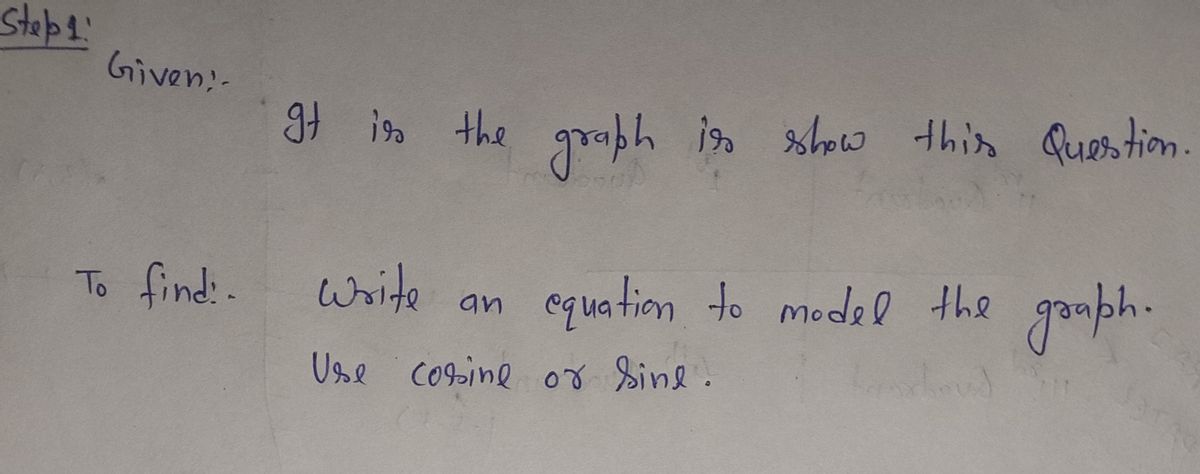 Step 1:
Given:-
It is the graph is show this Question.
To find:- Write an equation to model the graph.
Use cosine or sine.